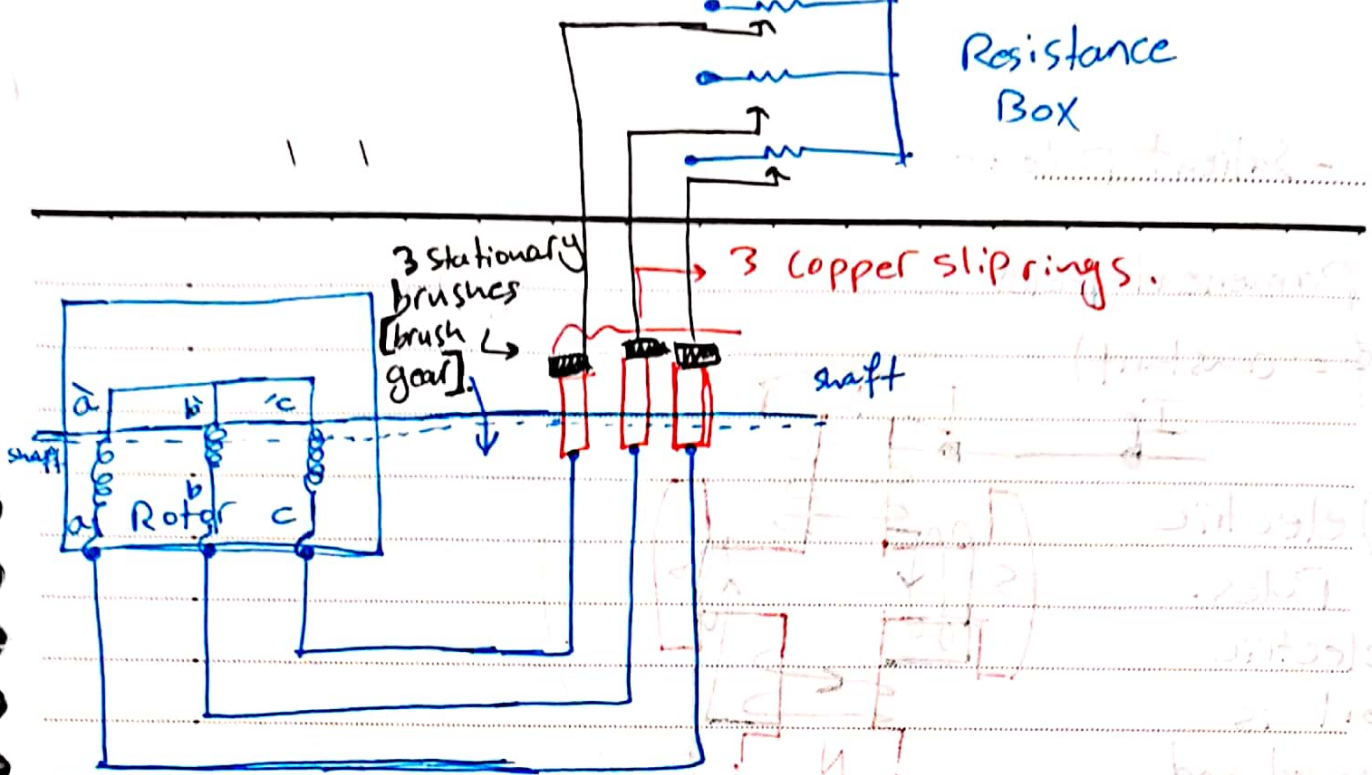 Resistance
Box
3 stationary
brushes
[brush
gear].
3 copper slip rings.
shaft
à b̀ 'c
shaft
b
a Rotor c